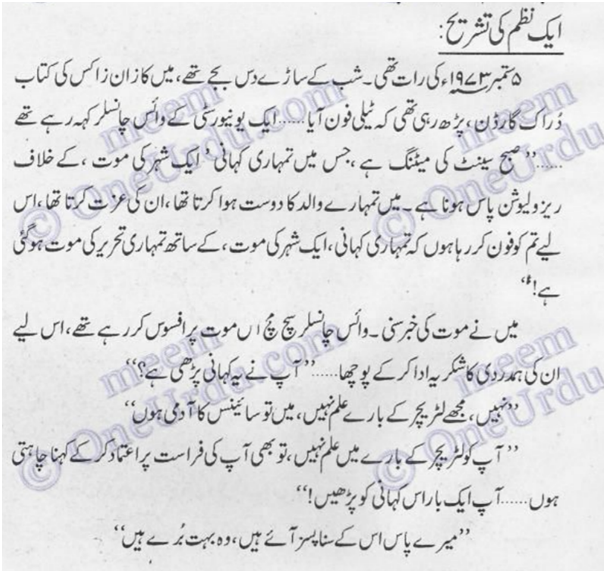 ایک نظم کی تشریح:
۵ ستمبر ۱۹۷۳ء کی رات تھی۔ شب کے ساڑے دس بجے تھے، میں کازان زاکس کی کتاب
دُراک گارڈن، پڑھ رہی تھی کہ ٹیلی فون آیا...... ایک یونیورسٹی کے وائس چانسلر کہہ رہے تھے
......’’صبح سینٹ کی میٹنگ ہے، جس میں تمہاری کہانی‘ ایک شہر کی موت، کے خلاف
ریزولیوشن پاس ہونا ہے۔ میں تمہارے والد کا دوست ہوا کرتا تھا، ان کی عزت کرتا تھا، اس
لیے تم کو فون کر رہا ہوں کہ تمہاری کہانی، ایک شہر کی موت، کے ساتھ تمہاری تحریر کی موت ہوگئی
ہے!‘‘
میں نے موت کی خبر سنی۔ وائس چانسلر سچ مچ اں موت پر افسوس کر رہے تھے، اس لیے
ان کی ہمدردی کا شکریہ ادا کر کے پوچھا......’’آپ نے یہ کہانی پڑھی ہے؟‘‘
’’نہیں، مجھے لٹریچر کے بارے علم نہیں، میں تو سائینس کا آدمی ہوں‘‘
’’آپ کو لٹریچر کے بارے میں علم نہیں، تو بھی آپ کی فراست پر اعتماد کر کے کہنا چاہتی
ہوں......آپ ایک بار اس کہانی کو پڑھیں!‘‘
’’میرے پاس اس کے سناپسز آئے ہیں، وہ بہت بُرے ہیں‘‘
meem
© OneUrdu.com
meem
© OneUrdu
meem
© OneUrdu.com
meem
© OneUrdu